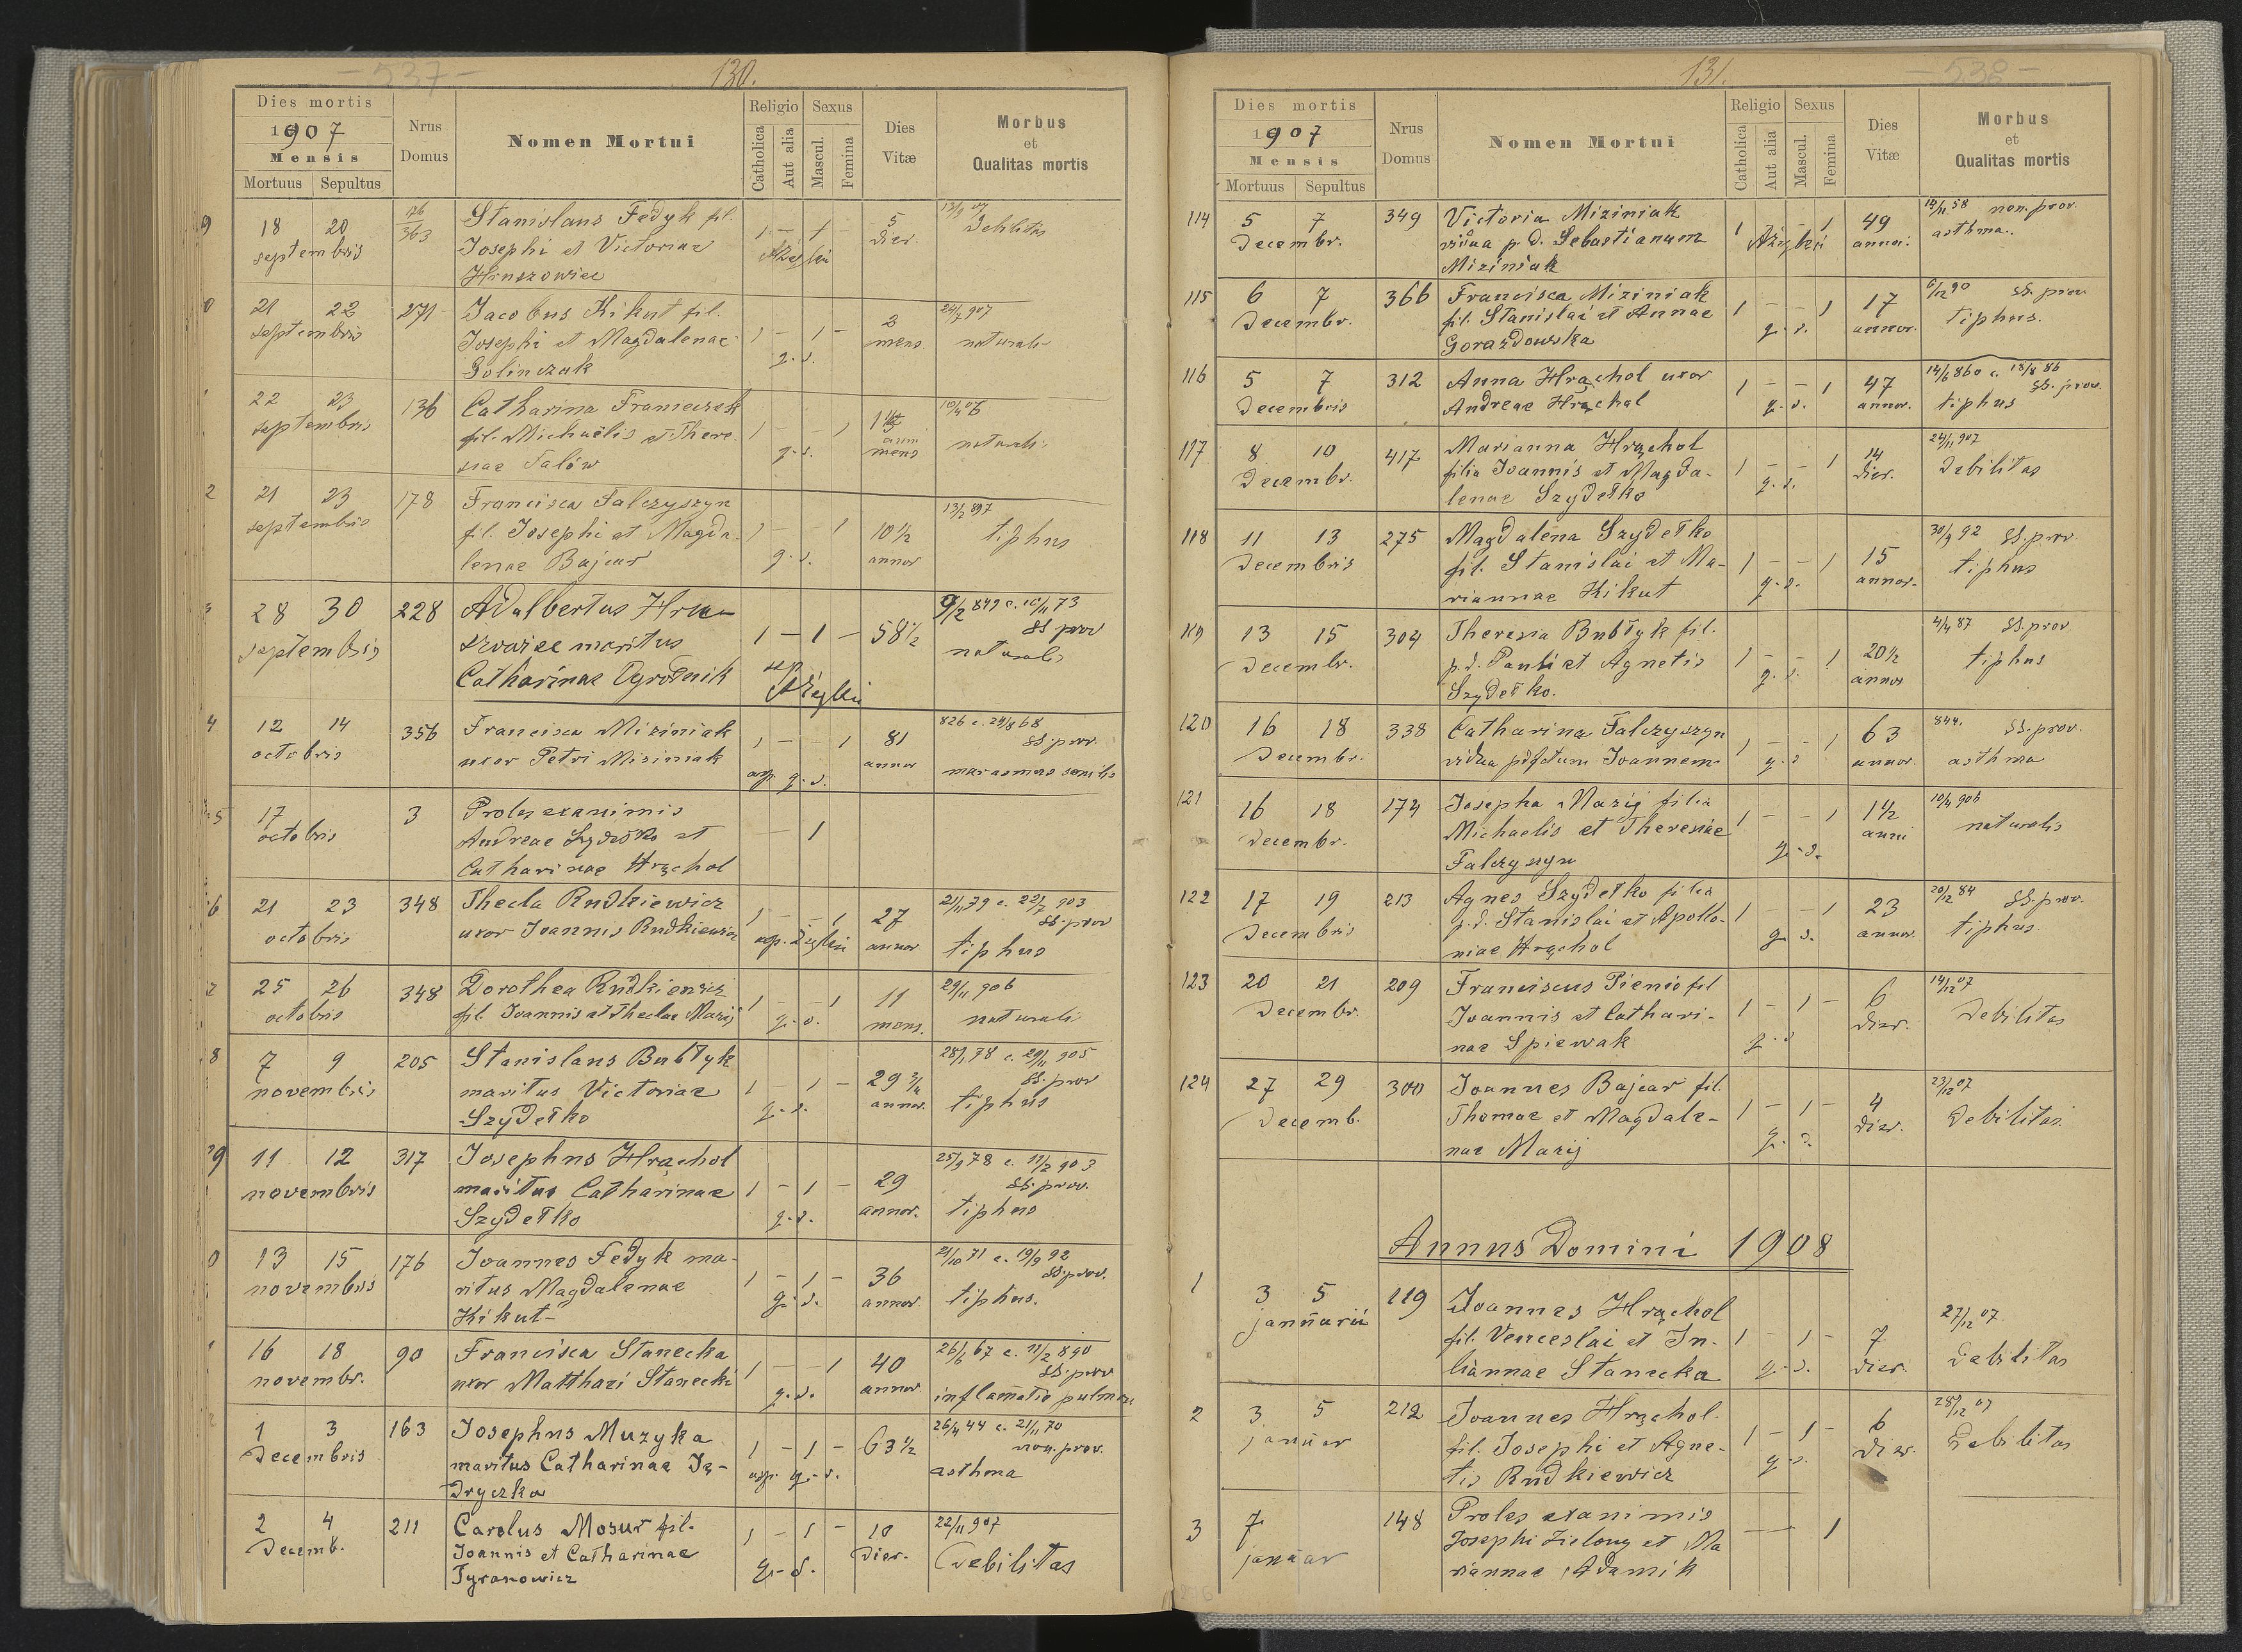 - 537 -
130.
Dies mortis
1907
Mensis
Mortuus Sepultus
Nrus
Domus
Nomen Mortui
Religio Sexus
Catholica
Aut alia
Mascul.
Femina
Dies
Vitæ
Morbus
et
Qualitas mortis
9 18 20 176/363 Stanislaus Fedyk fil. 1 - 1 - 5 13/9 07
septembris Josephi et Victoriae dier. Debilitas
Hruszowiec
0 21 22 271 Jacobus Kikut fil. 2 24/7 907
septembris Josephi et Magdalenae 1 - 1 - mens. naturalis
Golinczak g. s.
1 22 23 136 Catharina Franieczek 10/4 06
septembris fil. Michaëlis et There- 1 - - 1 naturalis
siae Salów g. s. mens
2 21 23 178 Francisca Falczyszyn 13/2 897
septembris fil. Josephi et Magda- 1 - - 1 10 1/2 tiphus
lenae Bajcar g. s. annor
28 30 228 Adalbertus Hru- 9/2 849 c. 10/11 73
septembris szowiec maritus 1 - 1 - 58 1/2 SS prov
Catharinae Ogrodnik naturalis
4 12 14 356 Francisca Miziniak 1 - - 1 81 826 c. 24/8 68
octobris uxor Petri Miziniak g. s. annor SS. prov.
marasmus senilis
5 17 3 Proles exanimis
octobris Andreae Szydełko et - 1
Catharinae Hrąchol
6 21 23 348 Thecla Rudkiewicz 1 - - 1 27 21/11 79 c. 22/7 903
octobris uxor Joannis Rudkiewicz annor SS. prov
tiphus
7 25 26 348 Dorothea Rudkiewicz 1 - - 1 11 29/11 906
octobris fil. Joannis et Theclae Mazij g. s. mens. naturalis
8 7 9 205 Stanislaus Bubłyk 28/1 78 c. 29/11 905
novembris maritus Victoriae 1 - 1 - 29 3/4 SS. prov
Szydełko g. s. annor. tiphus
9 11 12 317 Josephus Hrąchol 25/9 78 c. 11/2 903
novembris maritus Catharinae 1 - 1 - 29 SS. prov.
Szydełko g. s. annor. tiphus
0 13 15 176 Joannes Fedyk ma- 21/10 71 c. 19/9 92
novembris ritus Magdalenae 1 - 1 - 36 SS. prov.
Kikut g. s. annor. tiphus.
16 18 90 Francisca Stanecka 26/6 67 c. 11/2 890
novembr. uxor Matthaei Stanecki 1 - - 1 40 SS. prov
g. s. annor. inflamatio pulmon
1 3 163 Josephus Muzyka 26/4 44 c. 21/11 70
Decembris maritus Catharinae Ję- 1 - 1 - 63 1/2 non. prov.
dryczka g. s. asthma
2 4 211 Carolus Mosur fil. 1 - 1 - 10 22/11 907
Decemb. Joannis et Catharinae dier. Debilitas
Tyranowicz g. s.
131.
- 538 -
Dies mortis
1907
Mensis
Mortuus Sepultus
Nrus
Domus
Nomen Mortui
Religio Sexus
Catholica
Aut alia
Mascul.
Femina
Dies
Vitæ
Morbus
et
Qualitas mortis
114 5 7 349 Victoria Miziniak 1 - 1 49 58 non. prov.
Decembr. vidua p. d. Sebastianum annor. asthma.
Miziniak
115 6 7 366 Francisca Miziniak 1 - - 1 17 6/12 90 SS. prov
Decembr. fil. Stanislai et Annae g. s. annor. tiphus.
Gorazdowska
116 5 7 312 Anna Hrąchol uxor 1 - - 1 47 14/6 860 c. 18/8 86
Decembris Andreae Hrąchol g. s. annor. tiphus SS. prov.
117 8 10 417 Marianna Hrąchol 14 24/11 907
Decembr. filia Joannis et Magda- 1 - - 1 dier. Debilitas
lenae Szydełko g. s.
118 11 13 275 Magdalena Szydełko 30/9 92 SS. prov.
Decembris fil. Stanislai et Ma- 1 - - 1 15 tiphus
riannae Kikut g. s. annor.
119 13 15 304 Theresia Bubłyk fil. 4/4 87 SS. prov.
Decembr. p. d. Pauli et Agnetis 1 - - 1 20 1/2 tiphus
Szydełko. g. s. annor
120 16 18 338 Catharina Falczyszyn 1 - - 1 63 844. SS. prov.
Decembr. vidua p. defctum Joannem g. s annor. asthma
121 16 18 174 Josepha Mazij filia 1 1/2 10/4 906
Decembr. Michaelis et Theresiae 1 - - 1 anni naturalis
Falczyszyn g. s.
122 17 19 213 Agnes Szydełko filia 20/12 84 SS. prov.
Decembris p. d. Stanislai et Apollo- 1 - - 1 23 tiphus
niae Hrąchol g. s. annor.
123 20 21 209 Franciscus Pienio fil 14/12 07
Decembr. Joannis et Cathari- 1 - 1 - 6 Debilitas
nae Spiewak g. s dier.
124 27 29 300 Joannes Bajcar fil. 23/12 07
Decemb. Thomae et Magdale- 1 - 1 - 4 Debilitas
nae Mazij g. s. dier.
Annus Domini 1908
1 3 5 119 Joannes Hrąchol 27/12 07
januarii fil. Venceslai et Ju- 1 - 1 - 7 Debilitas
liannae Stanecka g. s. dier.
2 3 5 212 Joannes Hrąchol 28/12 07
januar fil. Josephi et Agne- 1 - 1 - 6 Debilitas
tis Rudkiewicz g. s. dier.
3 7 148 Proles exanimis
januar Josephi Zielony et Ma - 1
riannae Adamik